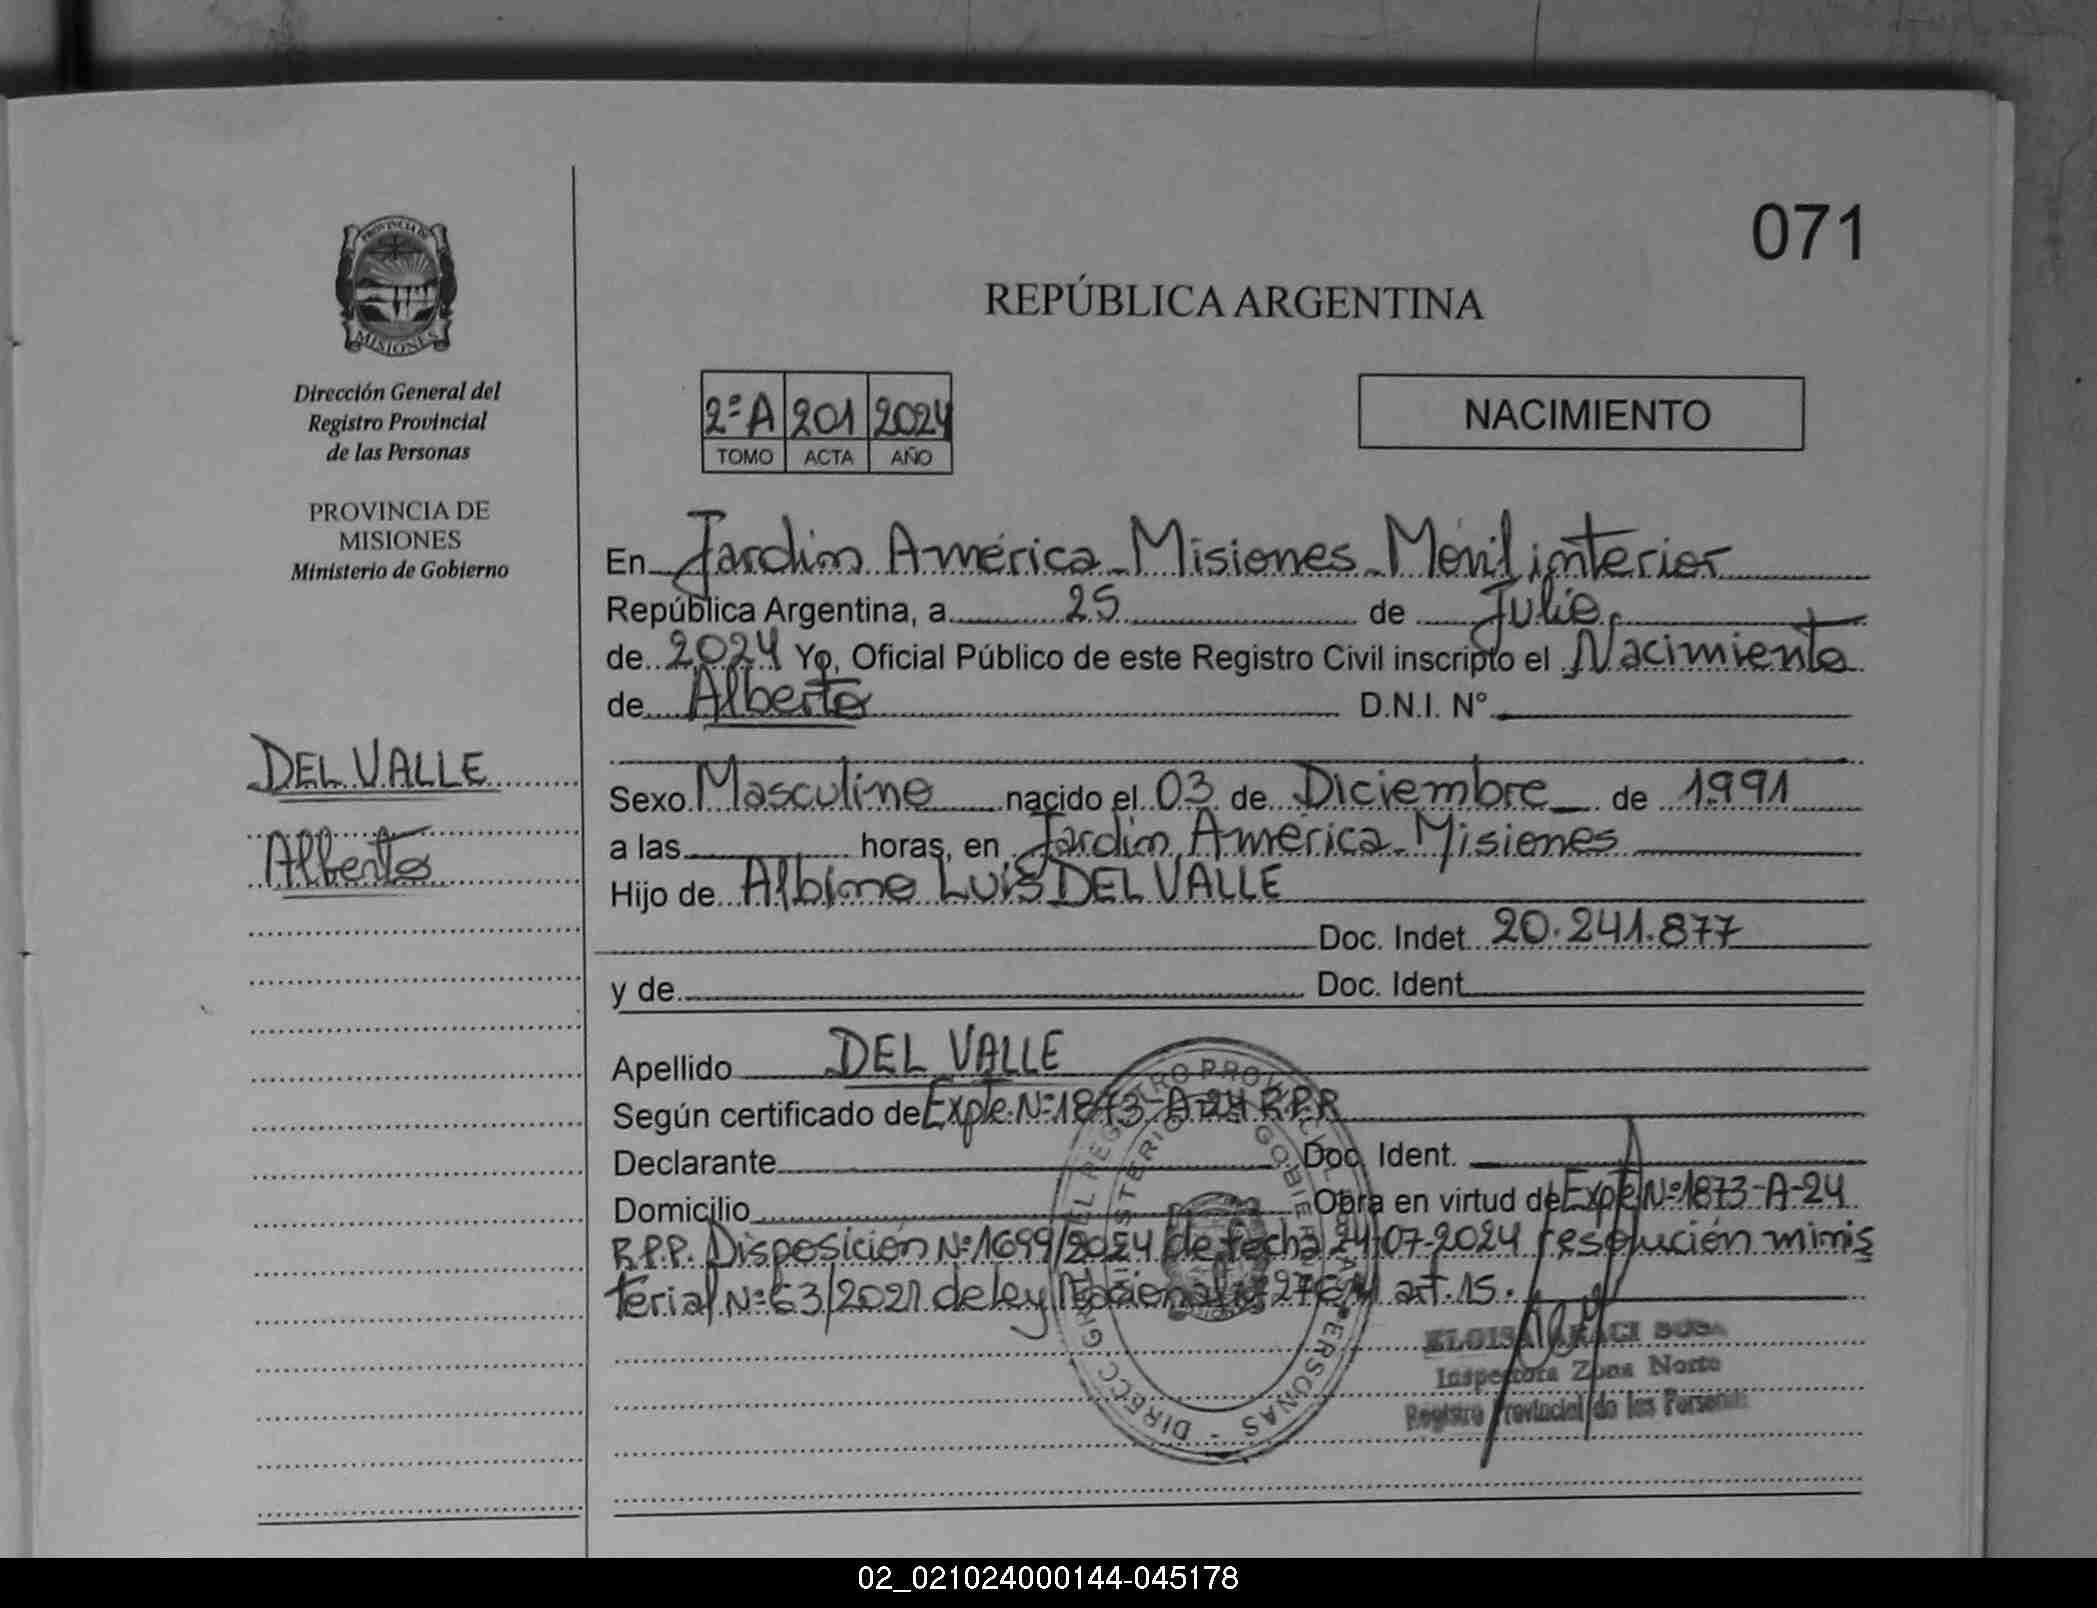 071
PROVINCIA DE
MISIONES
REPÚBLICA ARGENTINA
Dirección General del
Registro Provincial
de las Personas
PROVINCIA DE
MISIONES
Ministerio de Gobierno
2ºA 201 2024
TOMO ACTA AÑO
NACIMIENTO
En Jardín América - Misiones - Móvil interior
República Argentina, a 25 de Julio
de 2024 Yo, Oficial Público de este Registro Civil inscripto el Nacimiento
de Alberto D.N.I. N°
DEL VALLE
Alberto
Sexo Masculino nacido el 03 de Diciembre de 1991
a las horas, en Jardín América - Misiones
Hijo de Albino Luis DEL VALLE
Doc. Indet 20.241.877
y de Doc. Ident
Apellido DEL VALLE
Según certificado de Expte. Nº 1873-A-24 R.P.R
Declarante Doc. Ident.
Domicilio Obra en virtud de Expte Nº 1873-A-24
R.P.P. Disposición Nº 1699/2024 de fecha 24-07-2024 resolución minis
terial Nº 63/2021 de ley Nacional art. 15.
ELOISA ARACI
Inspectora Zona Norte
Registro Provincial de las Personas
02_021024000144-045178